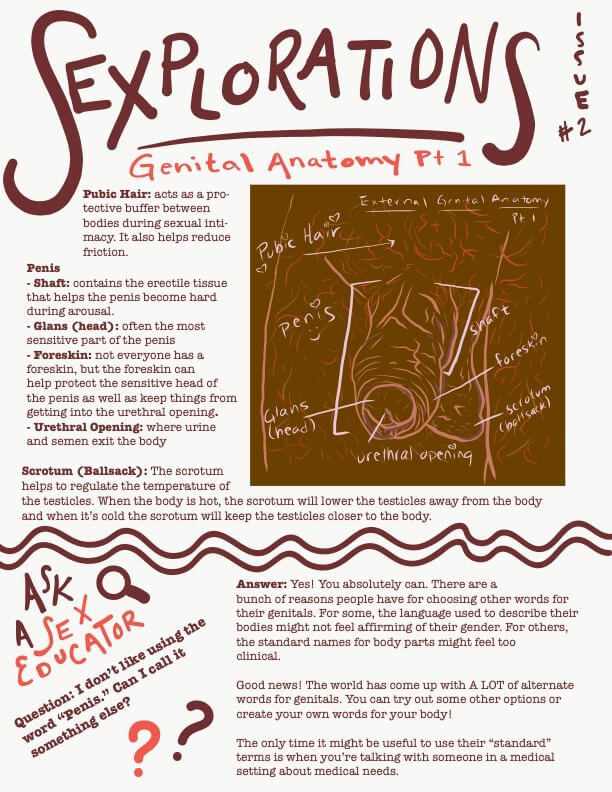 SEXPLORATIONS
ISSUE #2
Genital Anatomy Pt 1
Pubic Hair: acts as a pro-
tective buffer between
bodies during sexual inti-
macy. It also helps reduce
friction.
Penis
- Shaft: contains the erectile tissue
that helps the penis become hard
during arousal.
- Glans (head): often the most
sensitive part of the penis
- Foreskin: not everyone has a
foreskin, but the foreskin can
help protect the sensitive head of
the penis as well as keep things from
getting into the urethral opening.
- Urethral Opening: where urine
and semen exit the body
Scrotum (Ballsack): The scrotum
helps to regulate the temperature of
the testicles. When the body is hot, the scrotum will lower the testicles away from the body
and when it's cold the scrotum will keep the testicles closer to the body.
External Genital Anatomy
Pt 1
Pubic Hair
Penis
shaft
foreskin
Glans
(head)
scrotum
(ballsack)
urethral opening
ASK
A SEX
EDUCATOR
Question: I don't like using the
word "Penis." Can I call it
something else?
??
Answer: Yes! You absolutely can. There are a
bunch of reasons people have for choosing other words for
their genitals. For some, the language used to describe their
bodies might not feel affirming of their gender. For others,
the standard names for body parts might feel too
clinical.
Good news! The world has come up with A LOT of alternate
words for genitals. You can try out some other options or
create your own words for your body!
The only time it might be useful to use their "standard"
terms is when you're talking with someone in a medical
setting about medical needs.